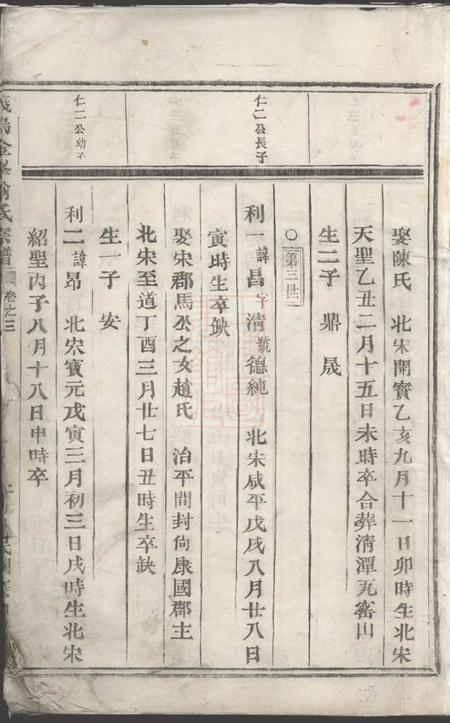 娶陳氏 北宋開寳乙亥九月十一日卯時生北宋
天聖乙丑二月十五日未時卒合葬清潭瓦窰山
生二子 鼎 晟
○第三世
仁二公長子
利一 諱昌 字清 號德純 北宋咸平戊戌八月廿八日
寅時生卒缺
娶宋郡馬公之女趙氏 治平間封尙康國郡主
北宋至道丁酉三月廿七日丑時生卒缺
生一子 安
仁二公幼子
利二 諱昂 北宋寳元戊寅三月初三日戌時生北宋
紹聖丙子八月十八日申時卒
義烏金峯
氏宗譜
卷之三